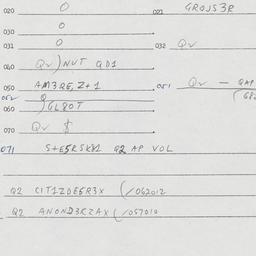 020 0 021 GROJS3R
030 0
031 0 032 Qv
040 Qv)NUT QD1
050 AM3RE,Z+1 051 Qv - QAP
052 Q
060 )GL8OT (68
070 Qv $
071 S+E5RSK81 Q2 AP VOL
Q2 CIT1ZOE5R3X (/062012
Q2 ANOND3RZAX (/057010